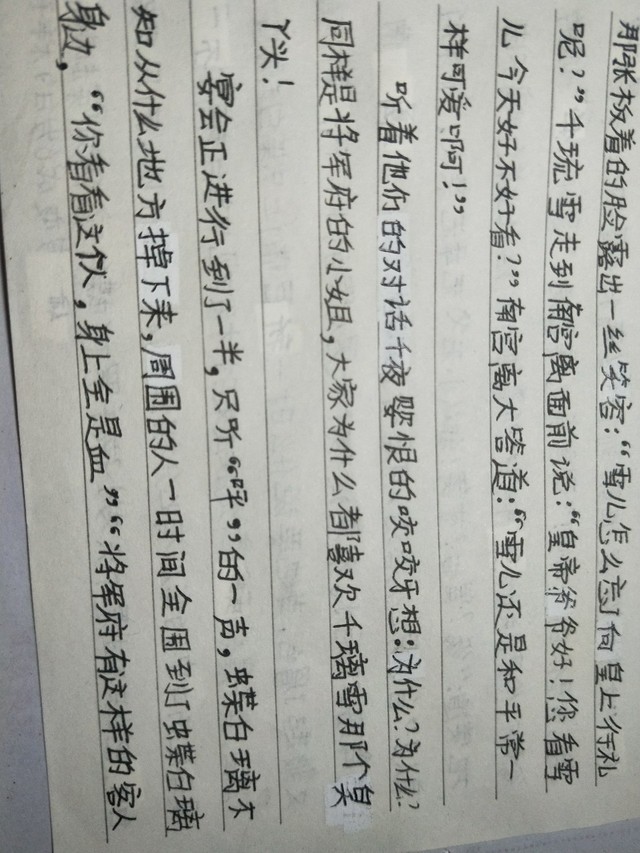 那张板着的脸露出一丝笑容:“雪儿怎么忘了向皇上行礼
呢?”千琉雪走到南宫离面前说:“皇帝爷爷好!你看雪
儿今天好不好看?”南宫离大皆道:“雪儿还是和平常一
样可爱啊!”
听着他们的对话千夜婴恨的咬咬牙想:为什么?为什么?
同样是将军府的小姐,大家为什么都喜欢千璃雪那个臭
丫头!
宴会正进行到了一半,只听“呯”的一声,蝶白璃不
知从什么地方掉下来,周围的人一时间全围到了蝶白璃
身边,“你看看这伙,身上全是血”“将军府有这样的客人